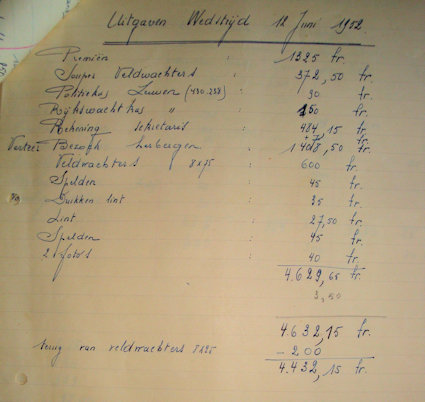 Uitgaven Wedstrijd 12 Juni 1952.
Premiën : 1325 fr.
Souper Veldwachters : 372,50 fr.
Politiekas Leuven (430.238) : 90 fr.
Rijkswacht kas " : 150 fr.
Rekening sekretaris : 484,15 fr.
Verteer Bezoek herbergen : 1408,50 fr.
Veldwachters 8x75 600 fr.
Spelden 45 fr.
lint : 35 fr.
Lint : 27,50 fr.
Spelden 45 fr.
2 foto's : 40 fr.
4.629,65 fr.
3,50
4.632,15 fr.
terug van veldwachters 8x25 - 200
4.432,15 fr.